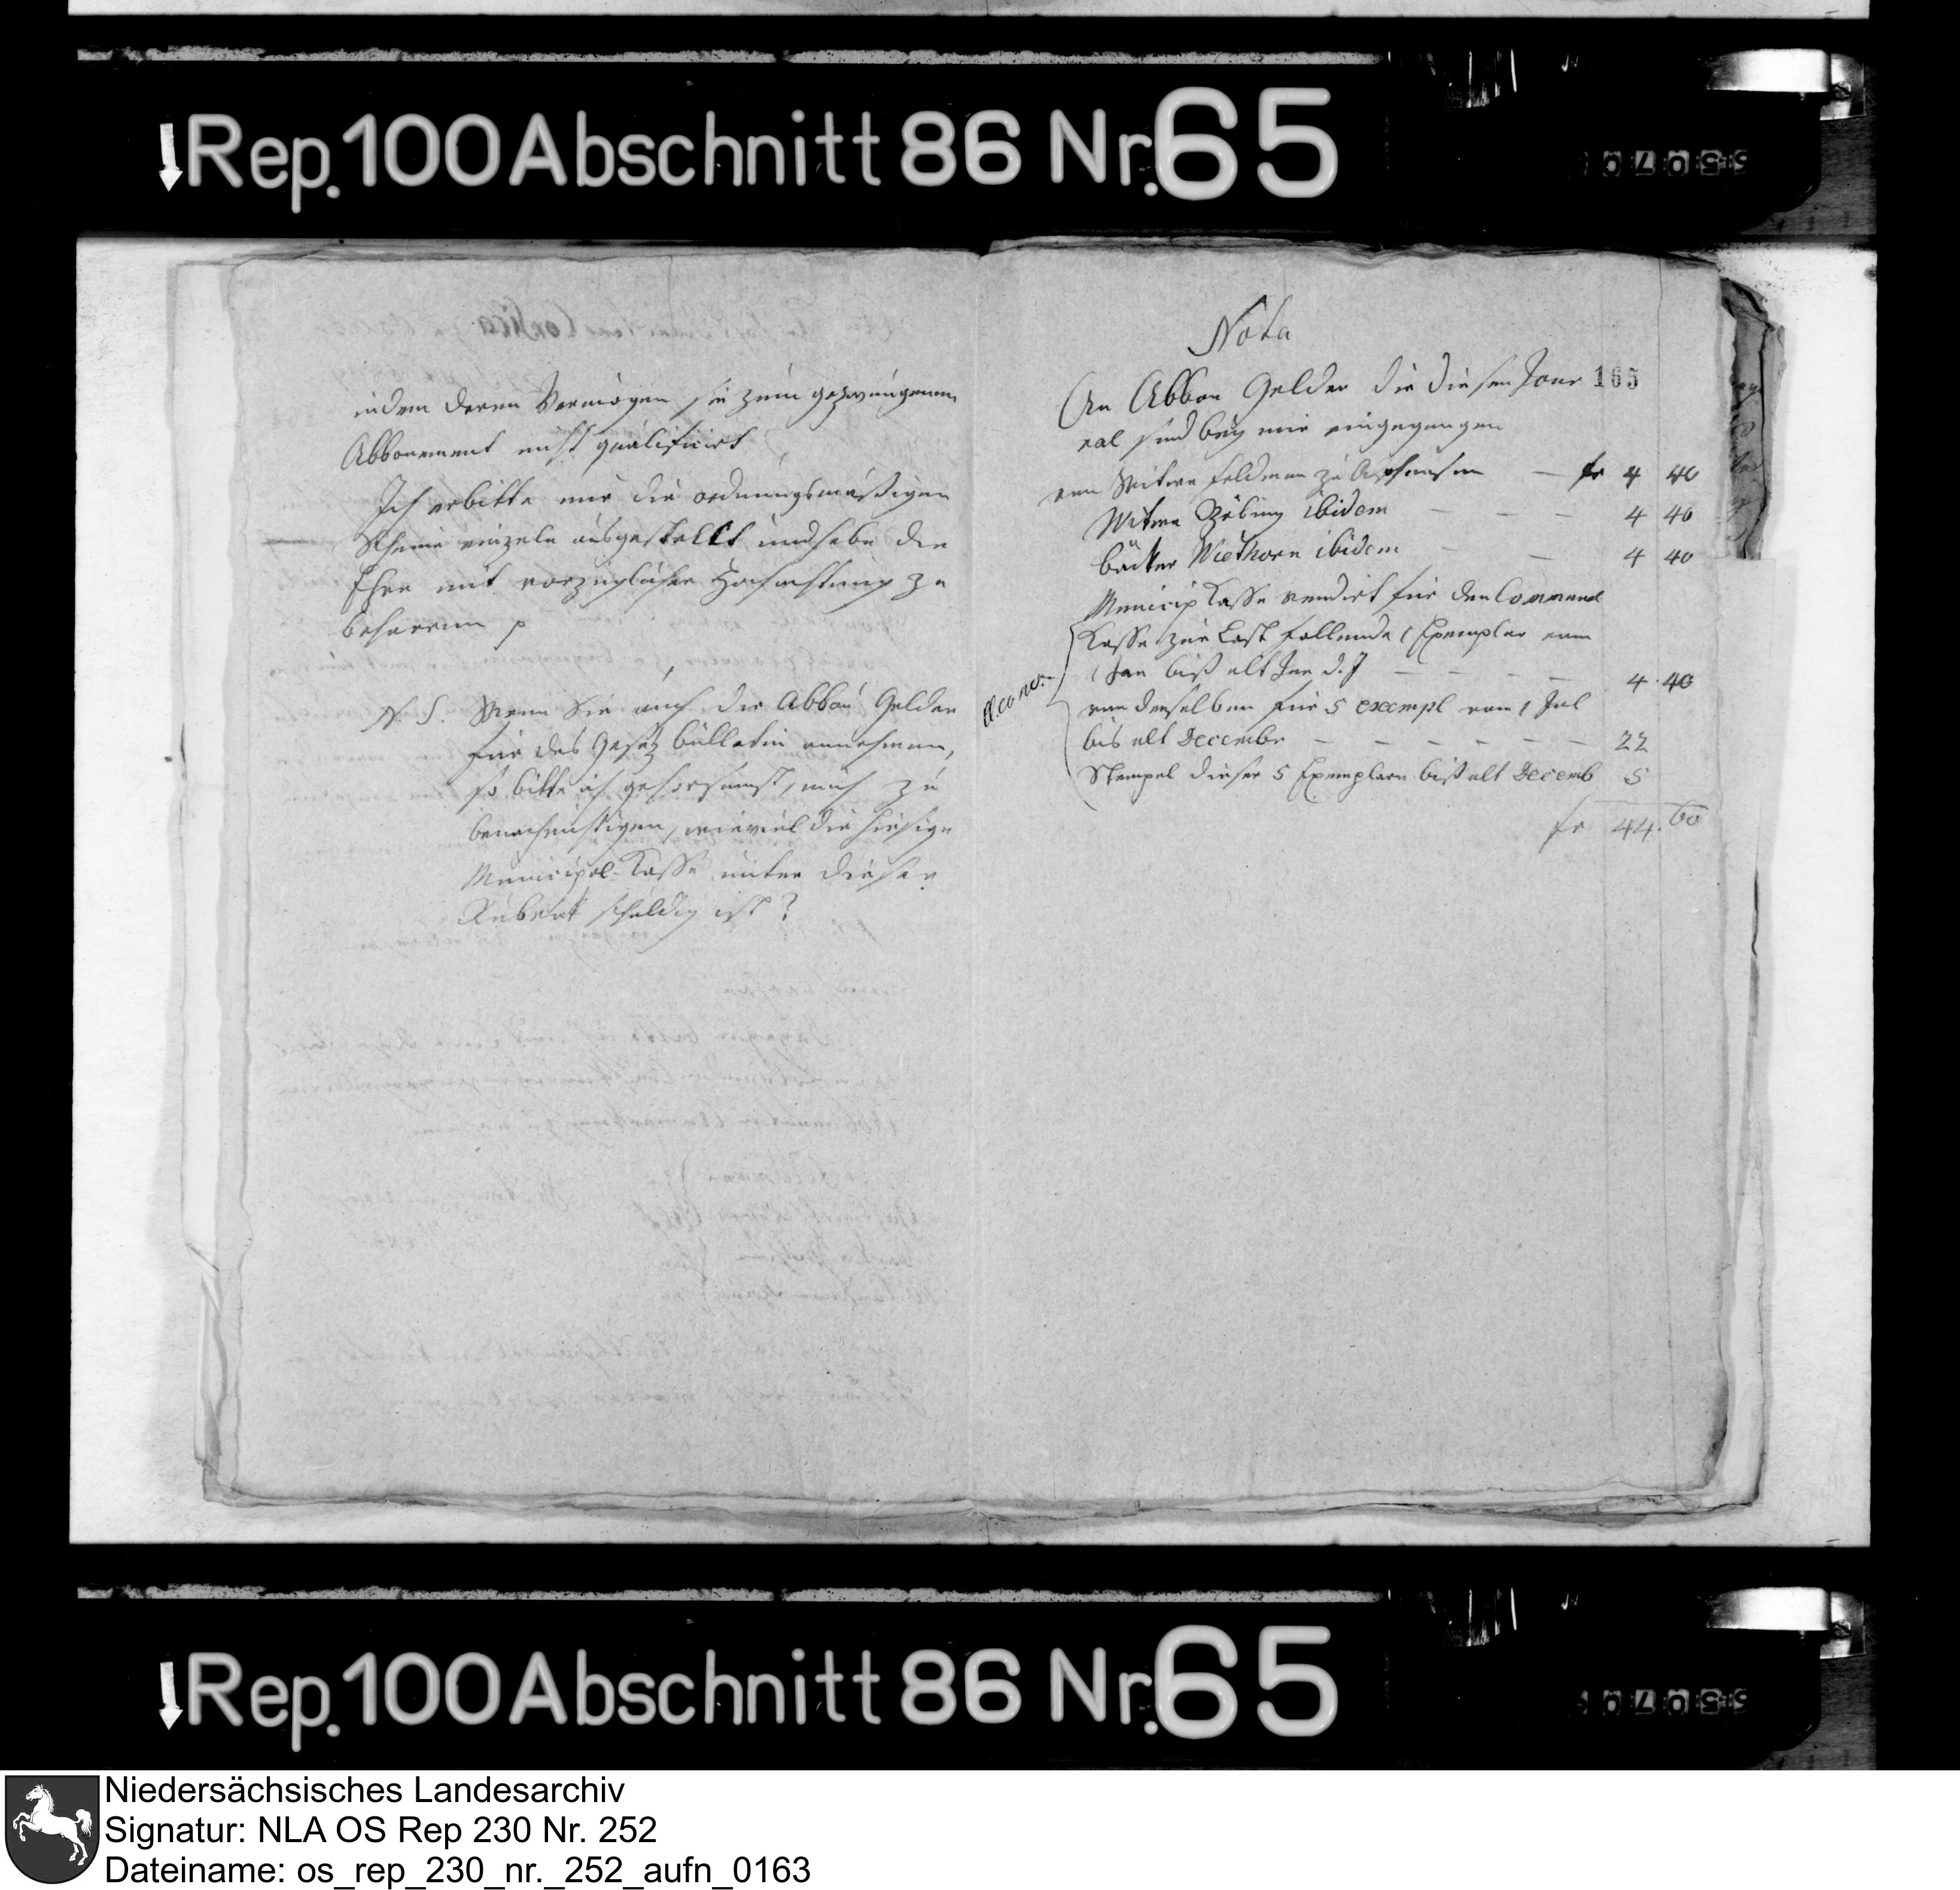 Rep. 100 Abschnitt 86 Nr. 65
indem deren Vermögen sie zum gezwungenen
Abbonement nicht qualificirt
Ich erbitte mir die ordnungsmäßigen
Scheine einzeln ausgestellt und habe die
Ehre mit vorzüglicher Hochachtung zu
beharren p
N. S. Wenn Sie auch die Abbon Gelder
für das Gesetz bülletin annehmen,
so bitte ich gehorsamst, mich zu
benachrichtigen, wieviel die hiesige
Municipal-Casse unter dieser
Rubrik schuldig ist?
Nota
165
An Abbon Gelder die diesen Jour
nal sind bey mir eingegangen
von Witwe Feldman zu — fr 4 40
Witwe ibidem — — — 4 40
bäcker Wiethorn ibidem — — 4 40
Municip Casse für den
Casse zur Last fallende 1 Exemplar vom
1 Jan biß ult Jun d. J — — — — 4. 40
von derselben für 5 exempl vom 1 Jul
bis ult Decembr — — — — — — 22
Stempel dieser 5 Exemplare biß ult Decemb 5
fr 44. 60
Rep. 100 Abschnitt 86 Nr. 65
Niedersächsisches Landesarchiv
Signatur: NLA OS Rep 230 Nr. 252
Dateiname: os_rep_230_nr._252_aufn_0163